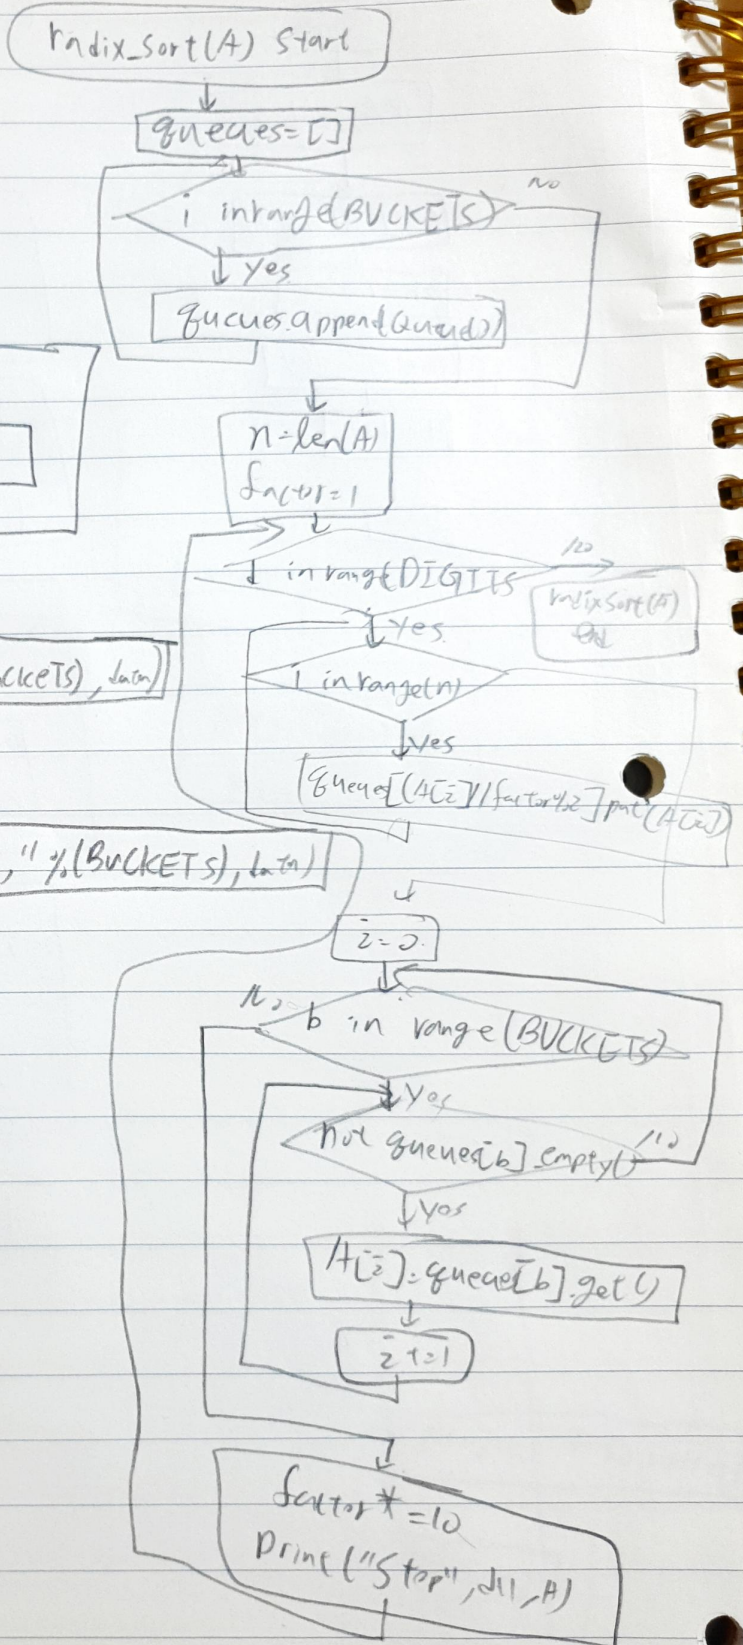 radix_sort(A) Start
queues=[]
i in range(BUCKETS)
No
Yes
queues.append(Queue())
n=len(A)
factor=1
d in range(DIGITS
no
radixsort(A)
end
Yes
i in range(n)
Yes
queues[(A[i]//factor%2].put(A[i])
CKETS), data)
," %(BUCKETS), data)
i=0
No
b in range(BUCKETS)
Yes
not queues[b].empty()
no
Yes
A[i]=queues[b].get()
i+=1
factor*=10
Print("Step", d+1, A)